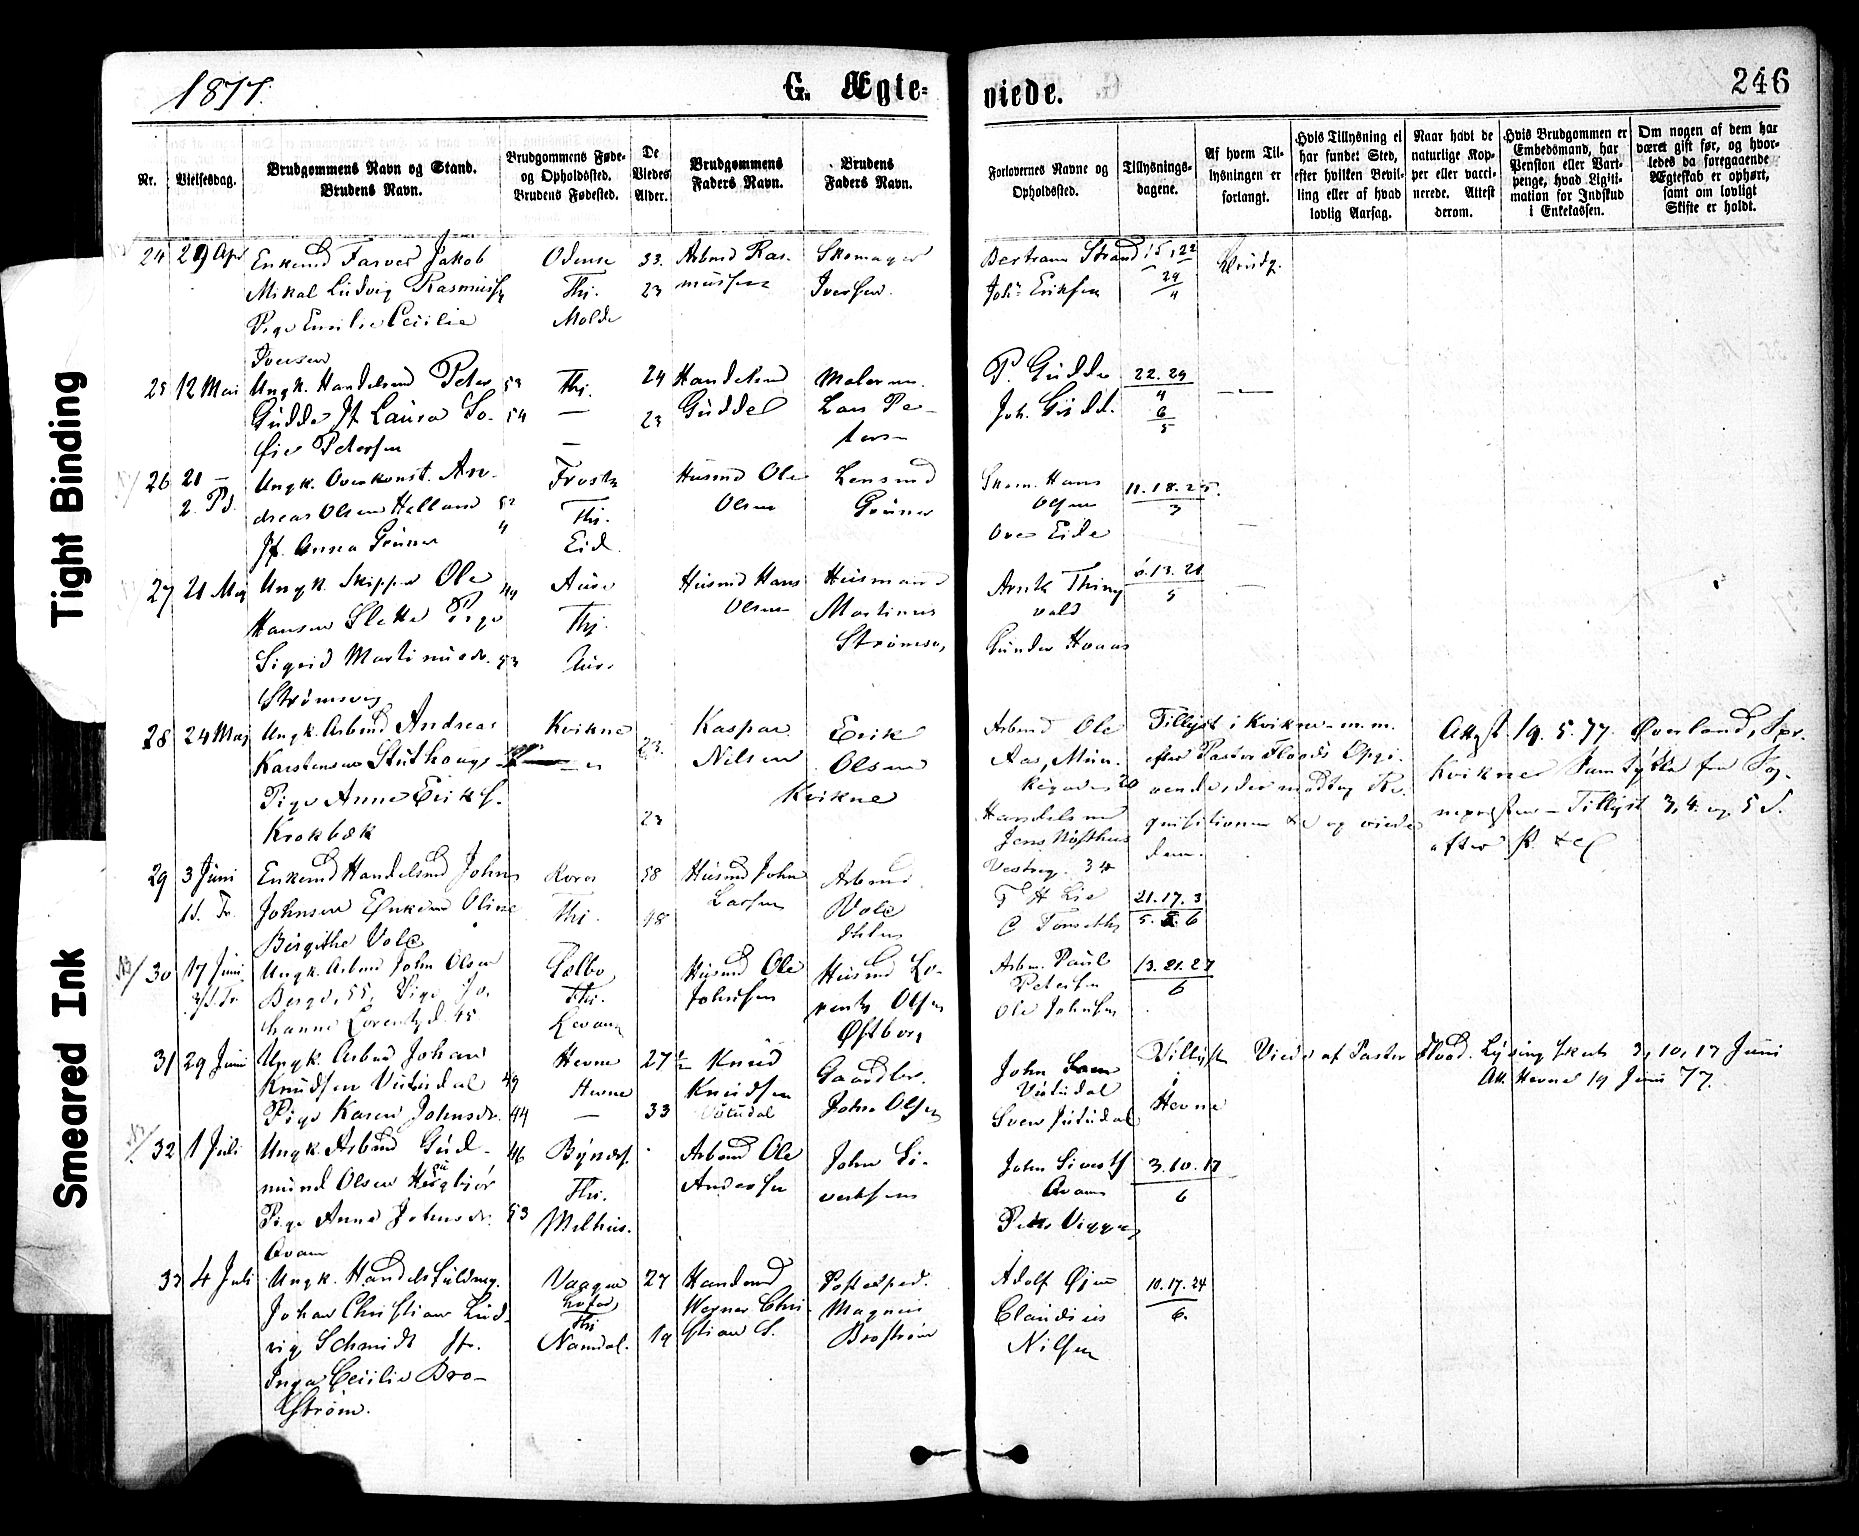 Tight Binding
Smeared Ink
1877.
G. Ægte-
viede.
246
Nr.
Vielsesdag.
Brudgommens Navn og Stand.
Brudens Navn.
Brudgommens Føde-
og Opholdssted.
Brudens Fødested.
De
Viedes
Alder.
Brudgommens
Faders Navn.
Brudens
Faders Navn.
Forlovernes Navne og
Opholdssted.
Tillysnings-
dagene.
Af hvem Til-
lysningen er
forlangt.
Hvis Tillysning ei
har fundet Sted,
efter hvilken Bevil-
ling eller af hvad
lovlig Aarsag.
Naar havt de
naturlige Kop-
per eller vacci-
nerede. Attest
derom.
Hvis Brudgommen er
Embedsmand, har
Pension eller Vart-
penge, hvad Ligiti-
mation for Indskud
i Enkekassen.
Om nogen af dem har
været gift før, og hvor-
ledes da foregaaende
Ægteskab er ophørt,
samt om lovligt
Skifte er holdt.
24 29 Apr Enkemd Farver Jakob
Mikal Ludvig Rasmus
Pige Emilie Cecilie
Iversen
Odense
Thj.
Molde
33.
23
Arbmd Ras-
mussen
Skomager
Iversen.
Bertram Strand
Johs Eriksen
15, 22
29
4
Brudg.
25 12 Mai Ungk. Handelsmd Peter 53
Gudde Jf. Laura So- 54
fie Petersen
Thj.
—
—
24
23
Handelsmd
Gudde
Malerm.
Lars Pe-
ters
P. Gudde
Joh. Gudd.
22. 29
4
6
5
26 20 —
2. Pd.
Ungk. Overkonst. An-
dreas Olsen Helland 52
Jf. Anna Grüner
Frosta
Thj.
Eid
Husmd Ole
Olsen
Lensmd
Grüner
Skom. Hans
Olsen
Ove Eide
11. 18. 25.
3
27 21 Maj Ungk. Skipper Ole 49
Hansen Slette Pige
Sigrid Martinusdr. 53
Strømsvig
Aure
Thj.
Aure
Husmd Hans
Olsen
Husmand
Martinus
Strømsv,
Arnt Thing
vald
Gunder Hovas
6. 13. 21
5
28 24 Maj Ungk. Arbmd Andreas
Karstensen Stuthaug
Pige Anne Eriks.
Krokbæk
Kvikne
23.
23
Kaspar
Nilsen
Erik
Olsen
Kvikne
Arbmd Ole
Aas, Mun-
kegaden 20
Handelsmd
Jens
Vestreg. 34
Tillyst i Kvikne m.m.
efter Pastor Floods Opgi-
vende, der modtog Re-
qvisitionen &c og viede
dem.
Attest 19. 5. 77. Øverland, Spr.
Kvikne Samtykke fra Sog-
nepresten — Tillyst 3, 4. og 5 S.
efter P. &c
29 3 Juni
1 S. Tr.
Enkemd Handelsmd John
Johnsen Enkemd Oline
Birgithe Vole
Røros
Thj.
58
48
Husmd John
Larsen
Arbmd.
Vole
T H Lie
O Tonseth
21. 17. 3
5. 5 6
30 17 Juni
3 S. Tr.
Ungk. Arbmd John Olsen
Berge, 55, Pige Jo-
hanne Lorentzd. 45
Selbo
Thj.
Levang
Husmd Ole
Johnsen
Husmd Lo-
rents Olsen
Østborg
Arbm. Paul
Petersen
Ole Johnsen
13. 21. 27
6
31 29 Juni Ungk. Arbmd Johan
Knudsen 49
Pige Karen Johnsdr. 44
Hevne
Hevne
—
27 ½
33
Knud
Knudsen
Gaardbr.
John Olsen
John
Sven
Tillyst
i
Hevne
Viede af Pastor Flood. Lysning skeet 3, 10, 17 Juni
Att. Hevne 19 Juni 77.
32 1 Juli Ungk. Arbmd Gud- 46
mund Olsen
Pige Anne Johnsdr. 53
Qvam
Bynes.
Thj.
Melhus.
Arbmd Ole
Andersen
John Si-
vertsen
John Siverts
Qvam
Peter Viggen
3. 10. 17
6
33 4 Juli Ungk. Handelsfuldmg.
Johan Christian Lud-
vig Schmidt Jf.
Inga Cecilie Bro-
strøm.
Vaagen
Lofot,
Thj
Namdal.
27
19
Handmd
Werner Chri-
stian S.
Postexped.
Magnus
Brostrøm
Adolf Øien
Claudius
Nilsen
10. 17. 24
6.